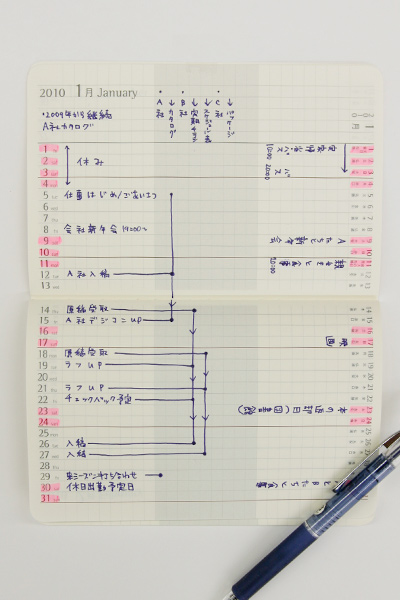 2010 1月 January
・2009年から継続
A社カタログ
A社
↓
カタログ
B社
↓
C社
↓
パッケージ
1
2
休み
3
4
5 仕事はじめ/ごあいさつ
6
7
8 会社新年会 19:00〜
9
10
11
12 A社入稿
13
14 原稿受取
15 A社デジコンUP
16
17
18 原稿受取
19 ラフUP
20
21 ラフUP
22 チェックバック予定
23
24
25
26 入稿
27 入稿
28
29 東シーズン打ち合わせ
30 休日出勤予定日
31
10:00
20:00
バス
Aたちと新年会
親
10:00
映画
本の返却日(図書館)